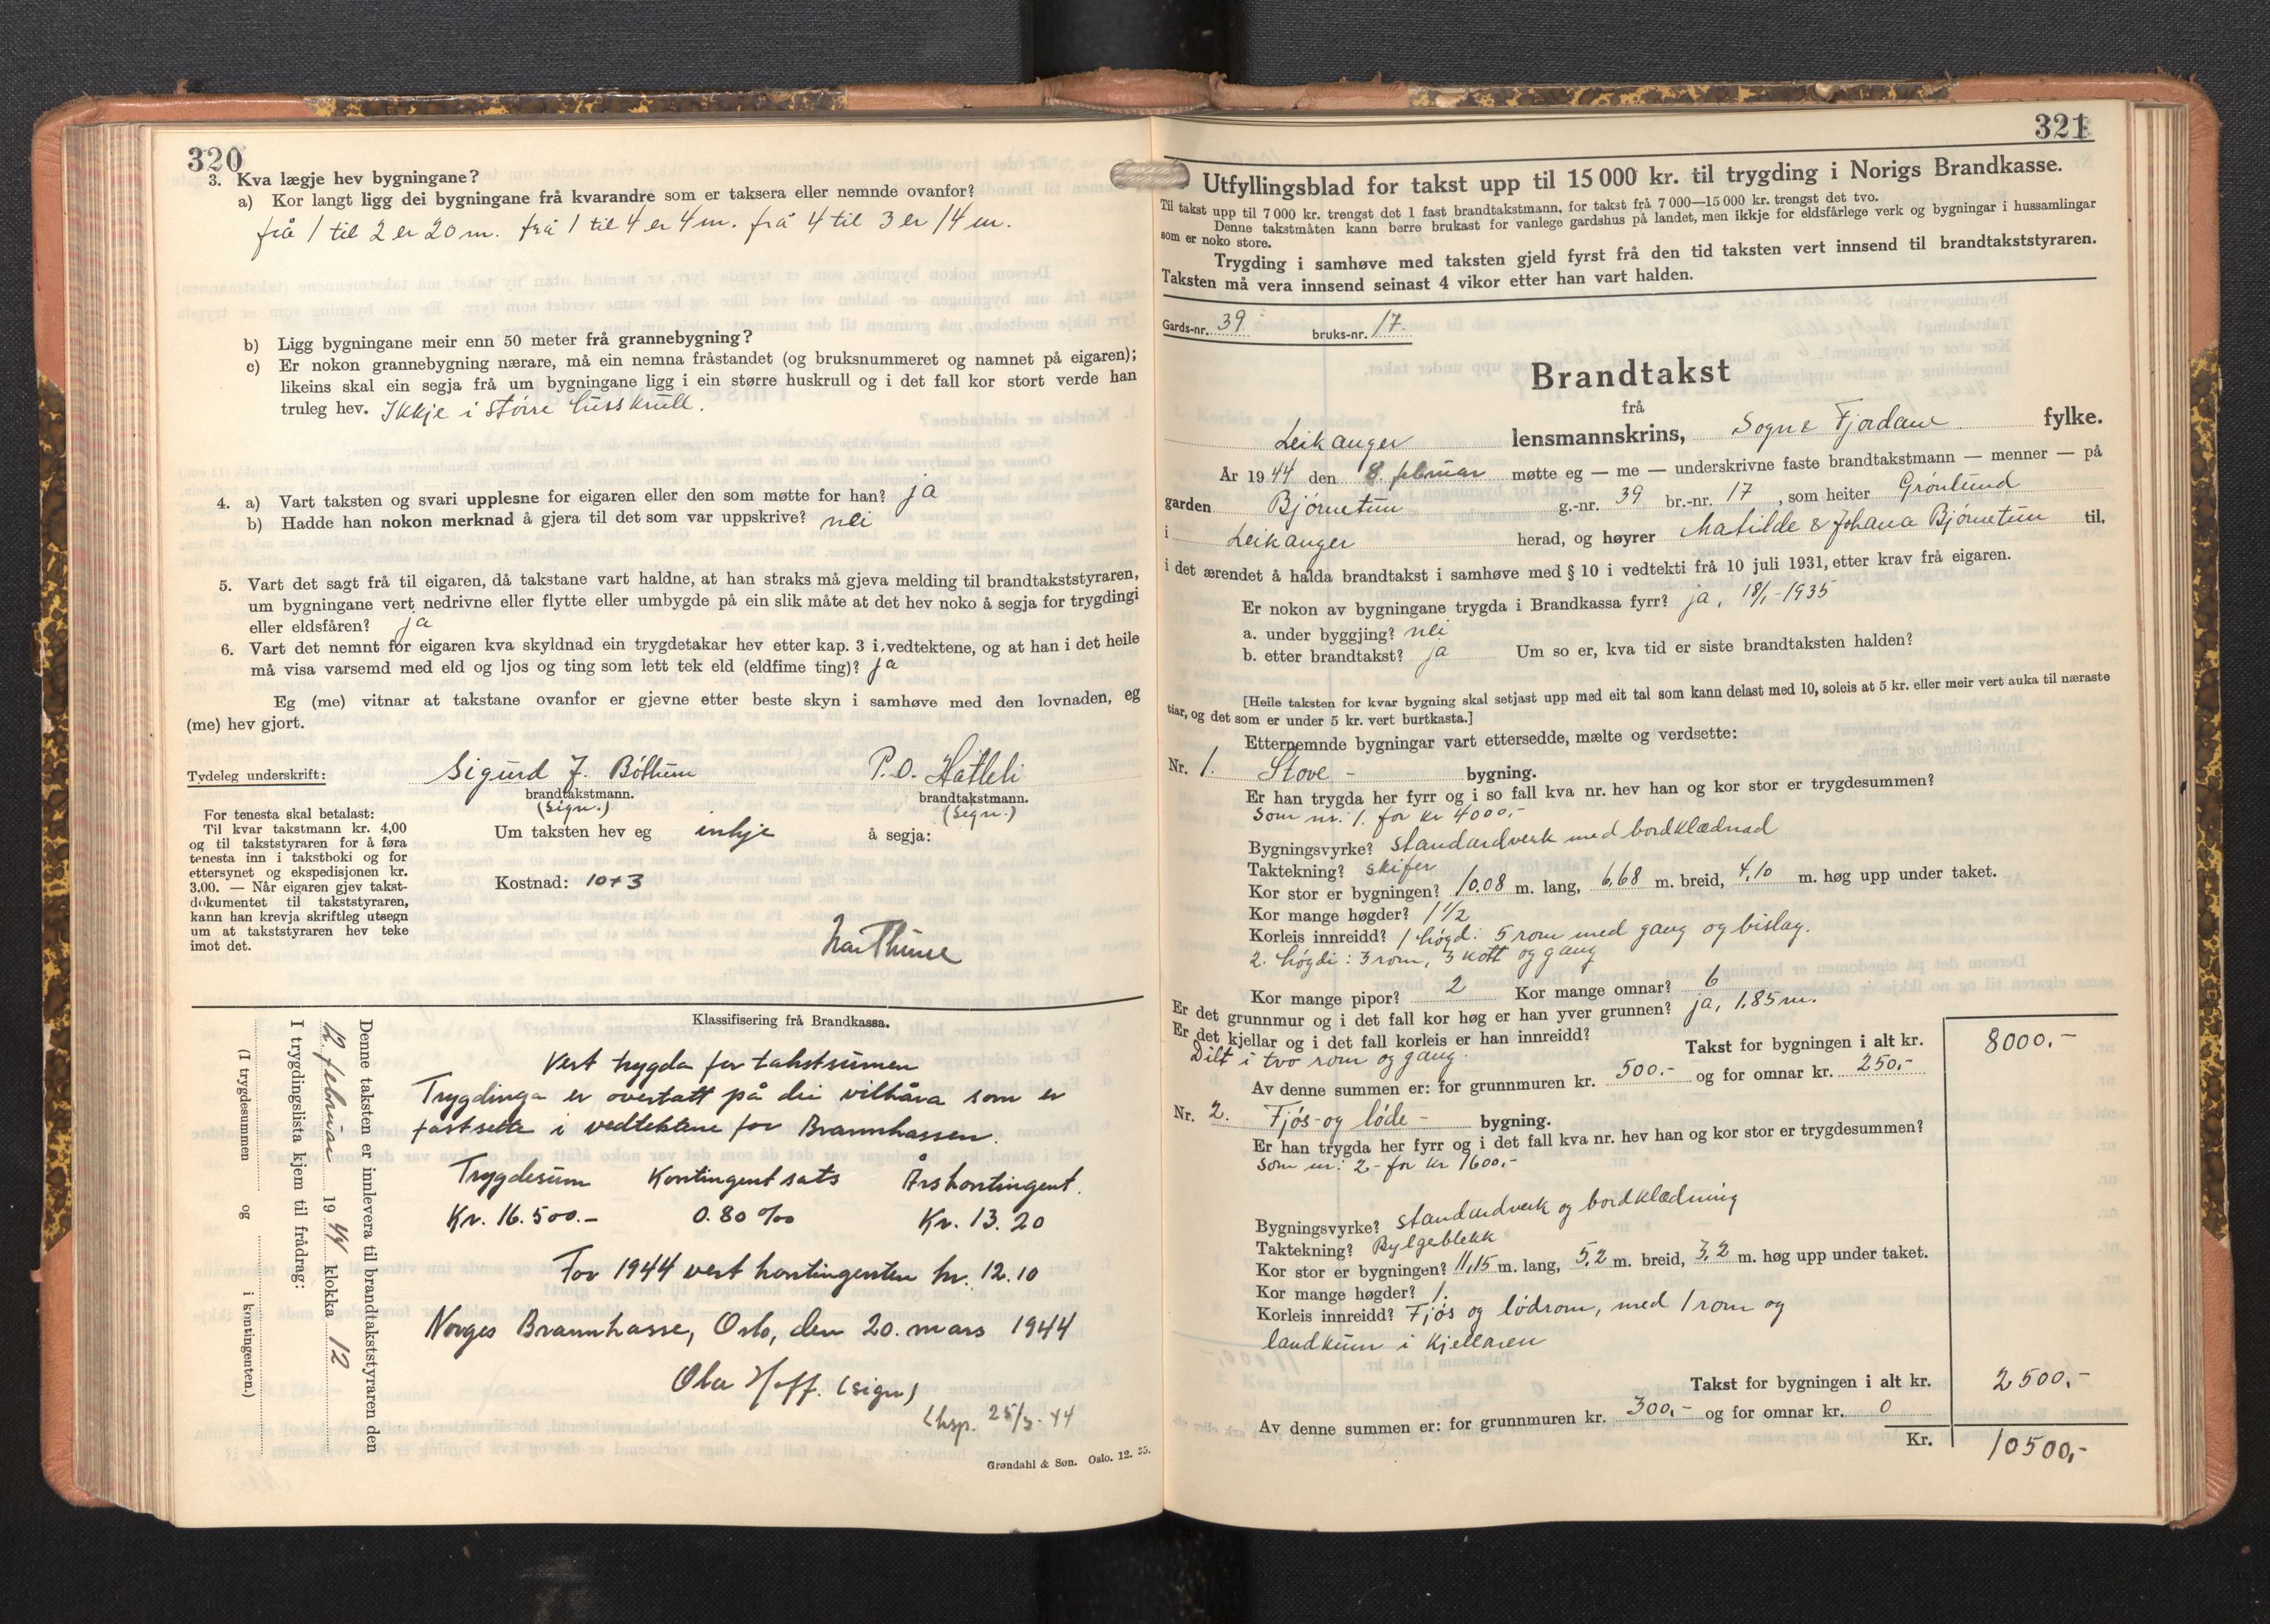 320
3. Kva lægje hev bygningane?
a) Kor langt ligg dei bygningane frå kvarandre som er taksera eller nemnde ovanfor?
frå 1 til 2 er 20 m. frå 1 til 4 er 4 m. frå 4 til 3 er 14 m.
b) Ligg bygningane meir enn 50 meter frå grannebygning?
c) Er nokon grannebygning nærare, må ein nemna fråstandet (og bruksnummeret og namnet på eigaren);
likeins skal ein segja frå um bygningane ligg i ein større huskrull og i det fall kor stort verde han
truleg hev. Ikkje i større husskrull.
4. a) Vart taksten og svari upplesne for eigaren eller den som møtte for han? ja
b) Hadde han nokon merknad å gjera til det som var uppskrive? nei
5. Vart det sagt frå til eigaren, då takstane vart haldne, at han straks må gjeva melding til brandtakststyraren,
um bygningane vert nedrivne eller flytte eller umbygde på ein slik måte at det hev noko å segja for trygdingi
eller eldsfåren? ja
6. Vart det nemnt for eigaren kva skyldnad ein trygdetakar hev etter kap. 3 i vedtektene, og at han i det heile
må visa varsemd med eld og ljos og ting som lett tek eld (eldfime ting)? ja
Eg (me) vitnar at takstane ovanfor er gjevne etter beste skyn i samhøve med den lovnaden, eg
(me) hev gjort.
Tydeleg underskrift: Sigurd J. Bøthun P. O. Hatleli
brandtakstmann. brandtakstmann.
(Sign.) (Sign.)
For tenesta skal betalast:
Til kvar takstmann kr. 4,00
og til takststyraren for å føra
tenesta inn i takstboki og for
ettersynet og ekspedisjonen kr.
3.00. — Når eigaren gjev takst-
dokumentet til takststyraren,
kann han krevja skriftleg utsegn
um at takststyraren hev teke
imot det.
Um taksten hev eg inkje å segja:
Kostnad: 10+3
Klassifisering frå Brandkassa.
Vert trygda for takstsumen
Trygdinga er overtatt på dei vilkåra som er
fastsette i vedtektene for Brannkassen.
Trygdesum Kontingentsats Årskontingent.
Kr. 16.500.- 0.80 ‰ Kr. 13.20
For 1944 vert kontingenten kr. 12.10
Norges Brannkasse, Oslo, den 20. mars 1944
Olav Hoff. (sign)
Eksp. 25/3-44
Grøndahl & Søn. Oslo. 12. 35.
Denne taksten er innlevera til brandtakststyraren den
12. februar 1944 klokka 12
I trygdingslista kjem til frådrag:
(I trygdesummen og i kontingenten.)
321
Utfyllingsblad for takst upp til 15 000 kr. til trygding i Norigs Brandkasse.
Til takst upp til 7 000 kr. trengst det 1 fast brandtakstmann, for takst frå 7 000—15 000 kr. trengst det tvo.
Denne takstmåten kann berre brukast for vanlege gardshus på landet, men ikkje for eldsfårlege verk og bygningar i hussamlingar
som er noko store.
Trygding i samhøve med taksten gjeld fyrst frå den tid taksten vert innsend til brandtakststyraren.
Taksten må vera innsend seinast 4 vikor etter han vart halden.
Gards-nr. 39 bruks-nr. 17.
Brandtakst
frå
Leikanger lensmannskrins, Sogn & Fjordane fylke.
År 1944 den 8. februar møtte eg — me — underskrivne faste brandtakstmann — menner — på
garden Bjørnetun g.-nr. 39 br.-nr. 17, som heiter Grønlund
i Leikanger herad, og høyrer Matilde & Johana Bjørnetun til,
i det ærendet å halda brandtakst i samhøve med § 10 i vedtekti frå 10 juli 1931, etter krav frå eigaren.
Er nokon av bygningane trygda i Brandkassa fyrr? ja, 18/1-1935
a. under byggjing? nei
b. etter brandtakst? ja Um so er, kva tid er siste brandtaksten halden?
[Heile taksten for kvar bygning skal setjast upp med eit tal som kann delast med 10, soleis at 5 kr. eller meir vert auka til næraste
tiar, og det som er under 5 kr. vert burtkasta.]
Etternemnde bygningar vart ettersedde, mælte og verdsette:
Nr. 1. Stove - bygning.
Er han trygda her fyrr og i so fall kva nr. hev han og kor stor er trygdesummen?
Som nr. 1. for kr 4000,-
Bygningsvyrke? standardverk med bordklædnad
Taktekning? skifer
Kor stor er bygningen? 10,08 m. lang, 6,68 m. breid, 4,10 m. høg upp under taket.
Kor mange høgder? 1 1/2
Korleis innreidd? 1 høgd: 5 rom med gang og bislag.
2. høgdi: 3 rom, 3 kott og gang
Kor mange pipor? 2 Kor mange omnar? 6
Er det grunnmur og i det fall kor høg er han yver grunnen? ja, 1,85 m.
Er det kjellar og i det fall korleis er han innreidd?
Dilt i tvo rom og gang. Takst for bygningen i alt kr. 8000.-
Av denne summen er: for grunnmuren kr. 500.- og for omnar kr. 250.-
Nr. 2. Fjøs- og løde - bygning.
Er han trygda her fyrr og i det fall kva nr. hev han og kor stor er trygdesummen?
Som nr: 2 - for kr 1600.-
Bygningsvyrke? standardverk og bordklædning
Taktekning? Bylgeblekk
Kor stor er bygningen? 11,15 m. lang, 5,2 m. breid, 3,2 m. høg upp under taket.
Kor mange høgder? 1.
Korleis innreidd? Fjøs og lødrom, med 1 rom og
landkum i kjellaren
Takst for bygningen i alt kr. 2500.-
Av denne summen er: for grunnmuren kr. 300.- og for omnar kr. 0
Kr. 10500,-